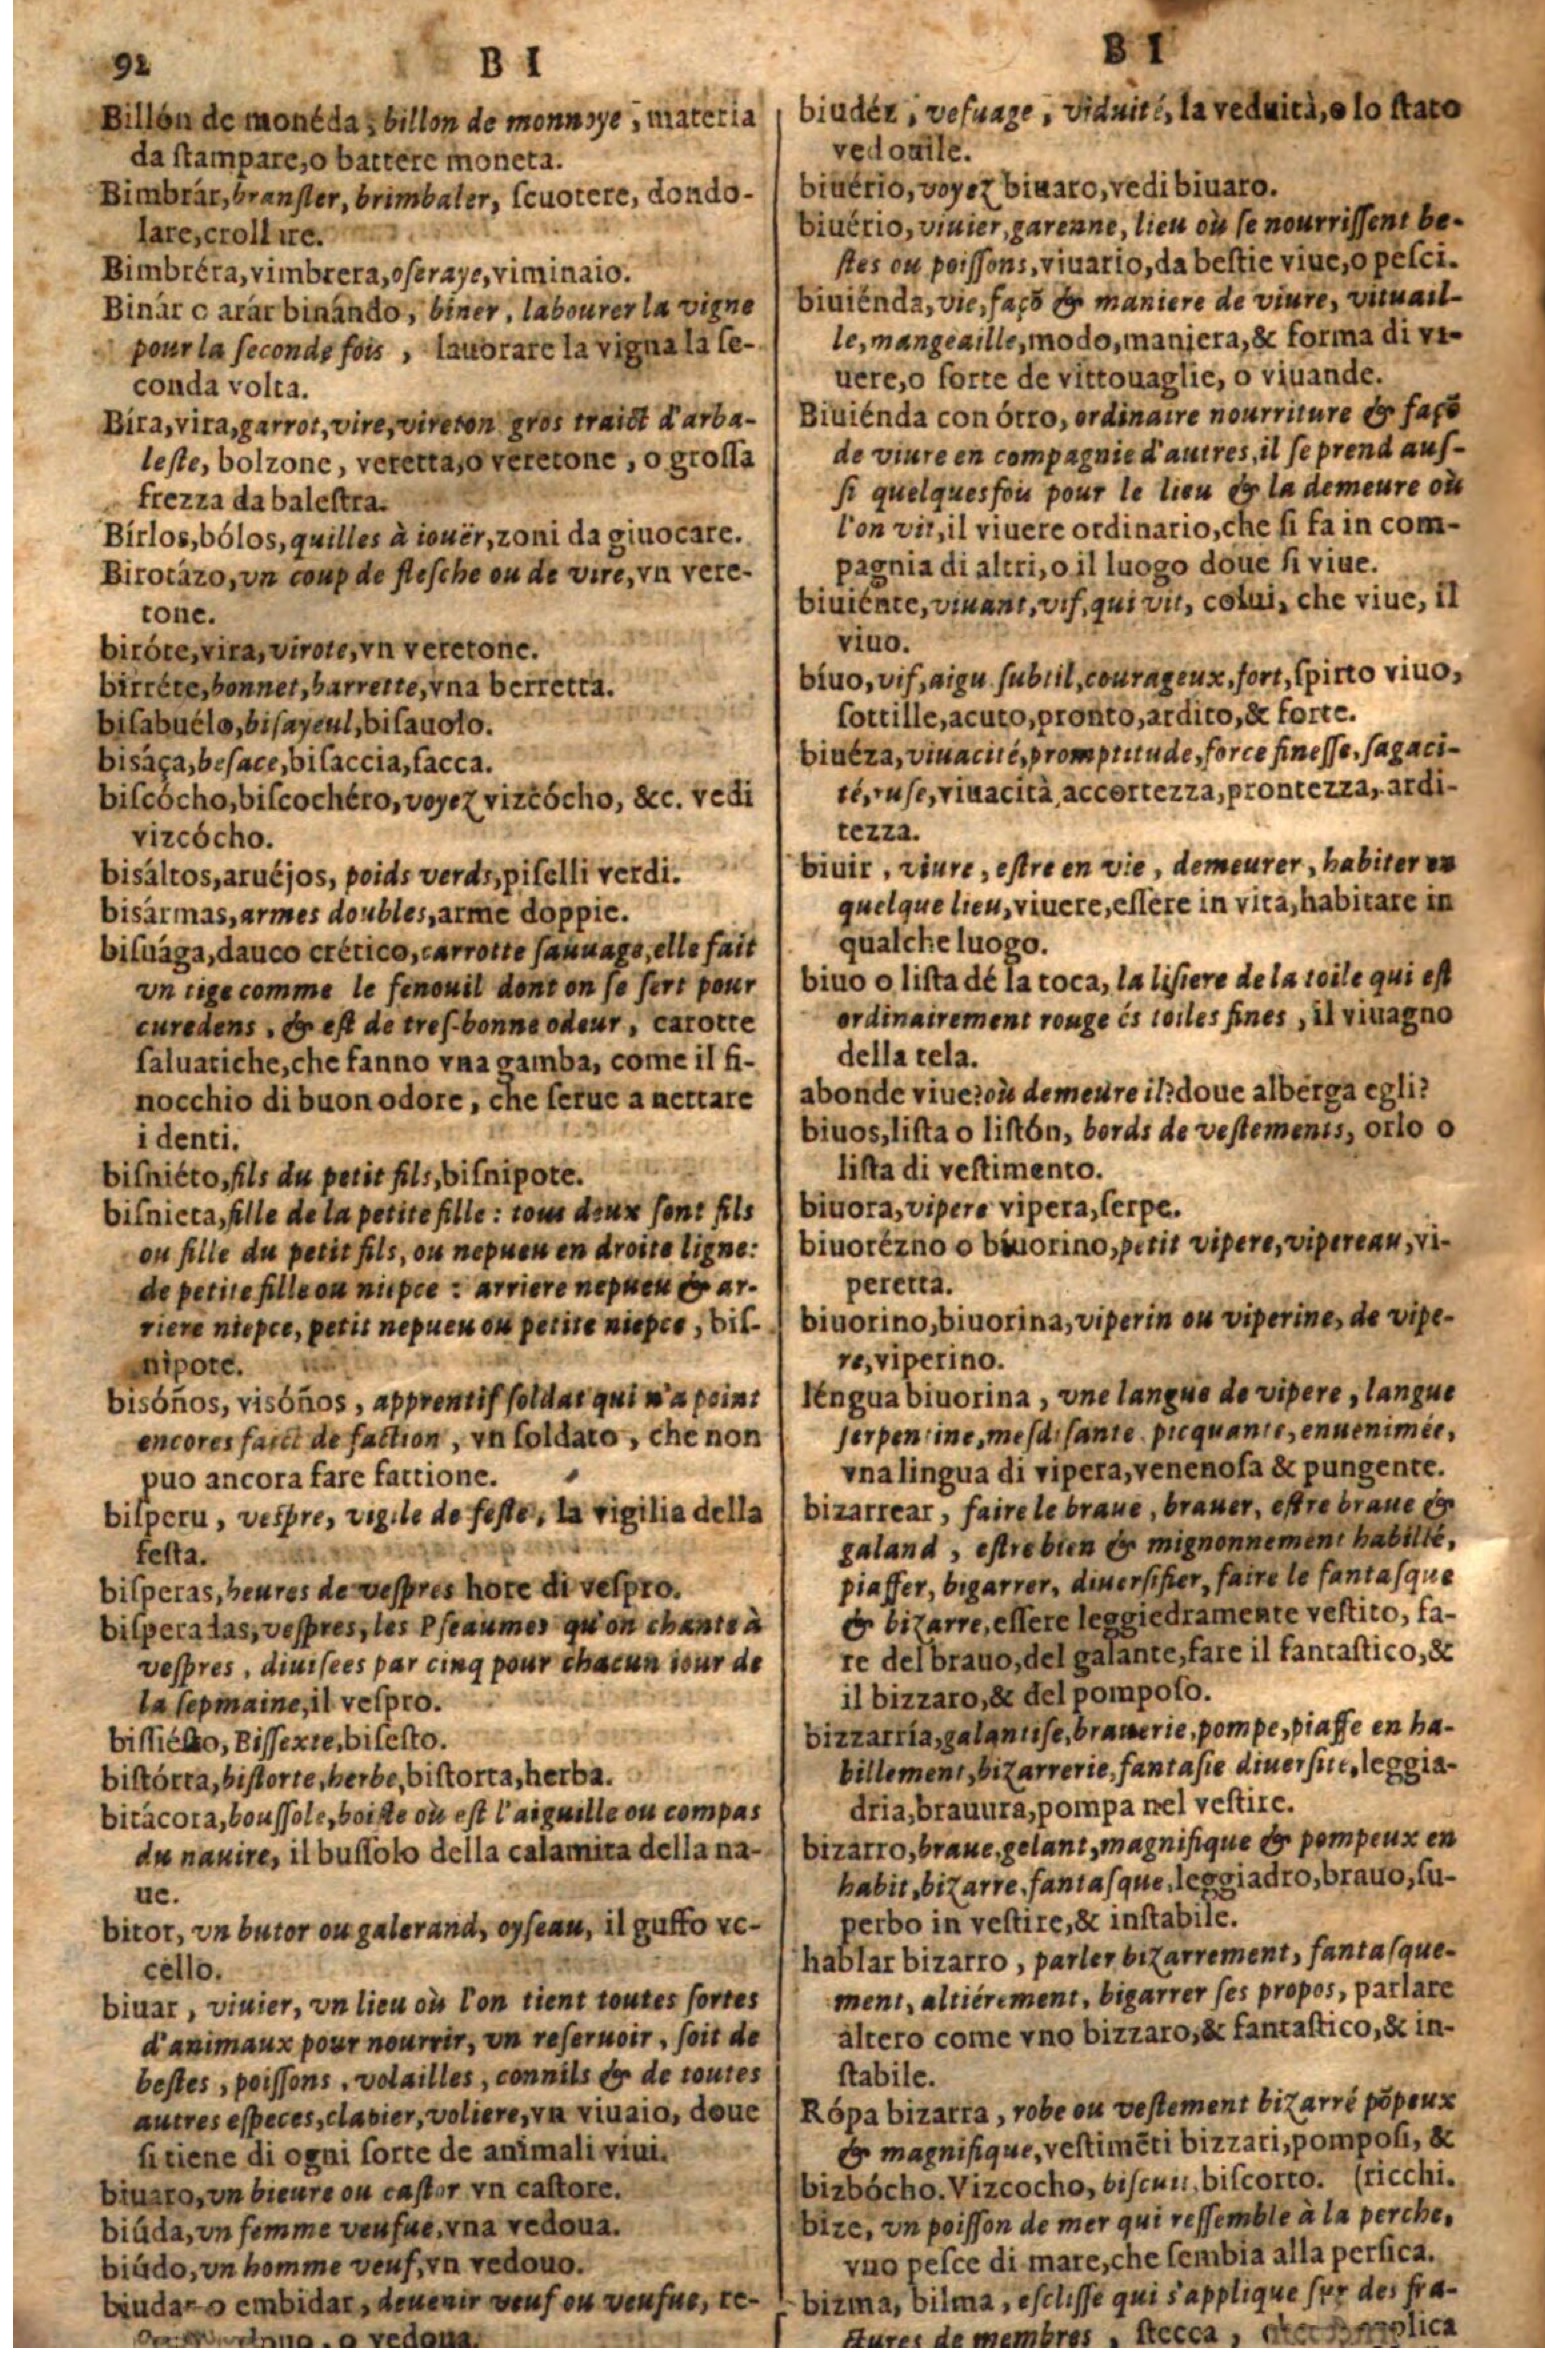 92
B I
Billón de monéda, billon de monnoye, materia
da ſtampare, o battere moneta.
Bimbrár, branſler, brimbaler, ſcuotere, dondo-
lare, crollare.
Bimbréra, vimbrera, oſeraye, viminaio.
Binár o arár binándo, biner, labourer la vigne
pour la ſeconde fois, lauorare la vigna la ſe-
conda volta.
Bíra, vira, garrot, vire, vireton gros traict d'arba-
leſte, bolzone, veretta, o veretone, o groſſa
frezza da baleſtra.
Bírlos, bólos, quilles à iouër, zoni da giuocare.
Birotázo, vn coup de fleſche ou de vire, vn vere-
tone.
biróte, vira, virote, vn veretone.
birréte, bonnet, barrette, vna berretta.
biſabuélo, biſayeul, biſauolo.
bisáça, beſace, biſaccia, ſacca.
biſcócho, biſcochéro, voyez vizcócho, &c. vedi
vizcócho.
bisáltos, aruéjos, poids verds, piſelli verdi.
bisármas, armes doubles, arme doppie.
biſuága, dauco crético, carrotte ſauuage, elle fait
vn tige comme le fenouil dont on ſe ſert pour
curedens, & eſt de treſ-bonne odeur, carotte
ſaluatiche, che fanno vna gamba, come il fi-
nocchio di buon odore, che ſerue a nettare
i denti.
biſniéto, fils du petit fils, biſnipote.
biſnieta, fille de la petite fille: tous deux ſont fils
ou fille du petit fils, ou nepueu en droite ligne:
de petite fille ou niepce: arriere nepueu & ar-
riere niepce, petit nepueu ou petite niepce, biſ-
nipote.
bisóños, visóños, apprentif ſoldat qui n'a point
encores faict de faction, vn ſoldato, che non
puo ancora fare fattione.
biſperu, veſpre, vigile de feſte, la vigilia della
feſta.
biſperas, heures de veſpres hore di veſpro.
biſperadas, veſpres, les Pſeaumes qu'on chante à
veſpres, diuiſees par cinq pour chacun iour de
la ſepmaine, il veſpro.
biſſiéſto, Biſſexte, biſeſto.
biſtórta, biſtorte, herbe, biſtorta, herba.
bitácora, bouſſole, boiſte où eſt l'aiguille ou compas
du nauire, il buſſolo della calamita della na-
ue.
bitor, vn butor ou galerand, oyſeau, il guffo vc-
cello.
biuar, viuier, vn lieu où l'on tient toutes ſortes
d'animaux pour nourrir, vn reſeruoir, ſoit de
beſtes, poiſſons, volailles, connils & de toutes
autres eſpeces, clapier, voliere, vn viuaio, doue
ſi tiene di ogni ſorte de animali viui.
biuaro, vn bieure ou caſtor vn caſtore.
biúda, vn femme veufue, vna vedoua.
biúdo, vn homme veuf, vn vedouo.
biudar o embidar, deuenir veuf ou veufue, re-
o vedoua.
B I
biudéz, veſuage, viduité, la veduità, o lo ſtato
vedouile.
biuério, voyez biuaro, vedi biuaro.
biuério, viuier, garenne, lieu où ſe nourriſſent be-
ſtes ou poiſſons, viuario, da beſtie viue, o peſci.
biuiénda, vie, façō & maniere de viure, vituail-
le, mangeaille, modo, maniera, & forma di vi-
uere, o ſorte de vittouaglie, o viuande.
Biuiénda con ótro, ordinaire nourriture & façō
de viure en compagnie d'autres, il ſe prend auſ-
ſi quelquesfou pour le lieu & la demeure où
l'on vit, il viuere ordinario, che ſi fa in com-
pagnia di altri, o il luogo doue ſi viue.
biuiénte, viuant, vif, qui vit, colui, che viue, il
viuo.
bíuo, vif, aigu ſubtil, courageux, fort, ſpirto viuo,
ſottille, acuto, pronto, ardito, & forte.
biuéza, viuacité, promptitude, force fineſſe, ſagaci-
té, ruſe, viuacità, accortezza, prontezza, ardi-
tezza.
biuir, viure, eſtre en vie, demeurer, habiter en
quelque lieu, viuere, eſſere in vita, habitare in
qualche luogo.
biuo o liſta dé la toca, la liſiere de la toile qui eſt
ordinairement rouge és toiles fines, il viuagno
della tela.
abonde viue? où demeure il? doue alberga egli?
biuos, liſta o liſtón, bords de veſtements, orlo o
liſta di veſtimento.
biuora, vipere vipera, ſerpe.
biuorézno o bíuorino, petit vipere, vipereau, vi-
peretta.
biuorino, biuorina, viperin ou viperine, de vipe-
re, viperino.
léngua biuorina, vne langue de vipere, langue
ſerpentine, meſdiſante picquante, enuenimée,
vna lingua di vipera, venenoſa & pungente.
bizarrear, faire le braue, brauer, eſtre braue &
galand, eſtre bien & mignonnement habillé,
piaffer, bigarrer, diuerſifier, faire le fantaſque
& bizarre, eſſere leggiedramente veſtito, fa-
re del brauo, del galante, fare il fantaſtico, &
il bizzaro, & del pompoſo.
bizzarría, galantiſe, brauerie, pompe, piaffe en ha-
billement, bizarrerie, fantaſie diuerſité, leggia-
dria, brauura, pompa nel veſtire.
bizarro, braue, gelant, magnifique & pompeux en
habit, bizarre, fantaſque, leggiadro, brauo, ſu-
perbo in veſtire, & inſtabile.
hablar bizarro, parler bizarrement, fantaſque-
ment, altiérement, bigarrer ſes propos, parlare
altero come vno bizzaro, & fantaſtico, & in-
ſtabile.
Rópa bizarra, robe ou veſtement bizarré pōpeux
& magnifique, veſtimēti bizzari, pompoſi, &
bizbócho. Vizcocho, biſcuit, biſcotto. (ricchi.
bize, vn poiſſon de mer qui reſſemble à la perche,
vno peſce di mare, che ſembia alla perſica.
bizma, bilma, eſcliſſe qui s'applique ſur des fra-
ctures de membres, ſtecca,